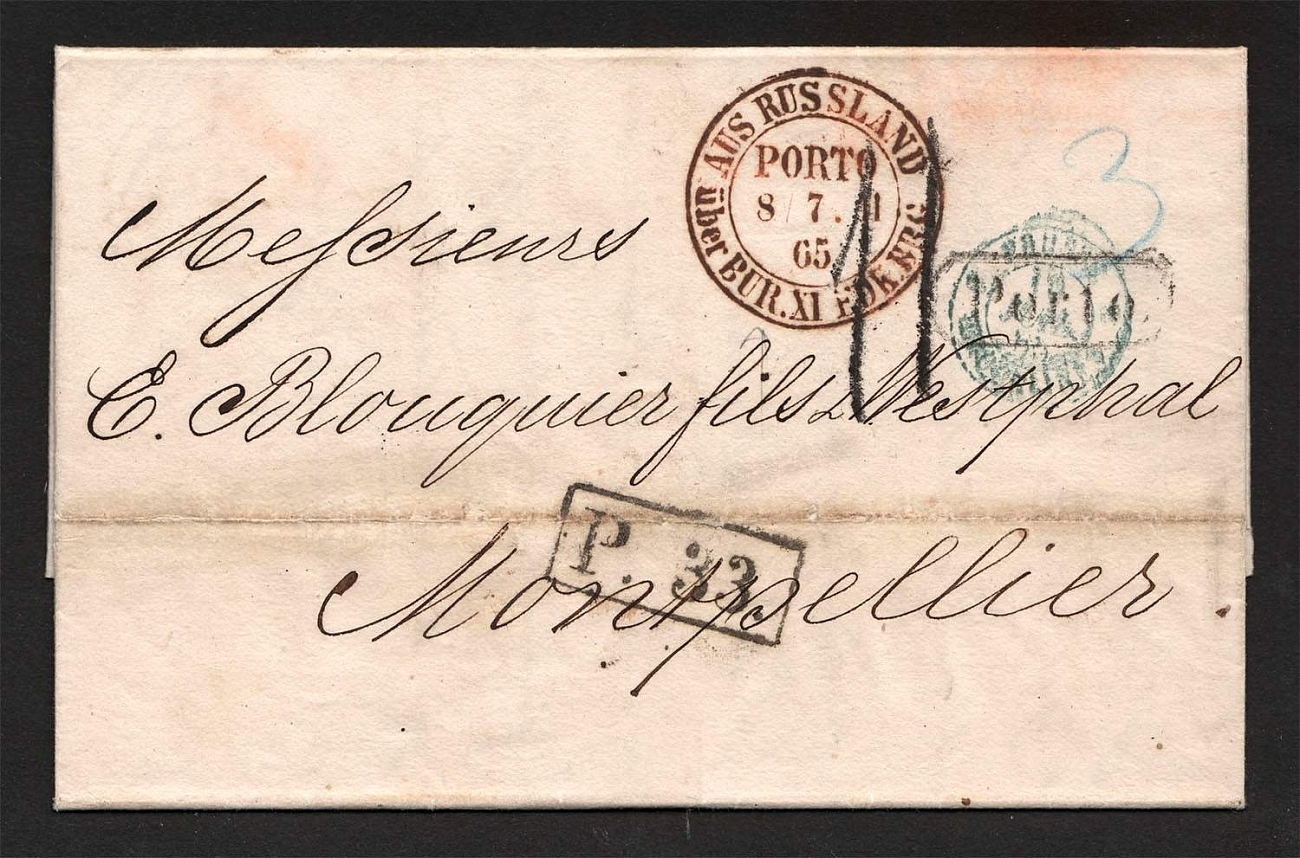 AUS RUSSLAND
über BUR. XI EDK. BRG.
PORTO
8 / 7. II
65
11
3
Porto
Messieurs
E. Blouquier fils & Westphal
P. 33
Montpellier.